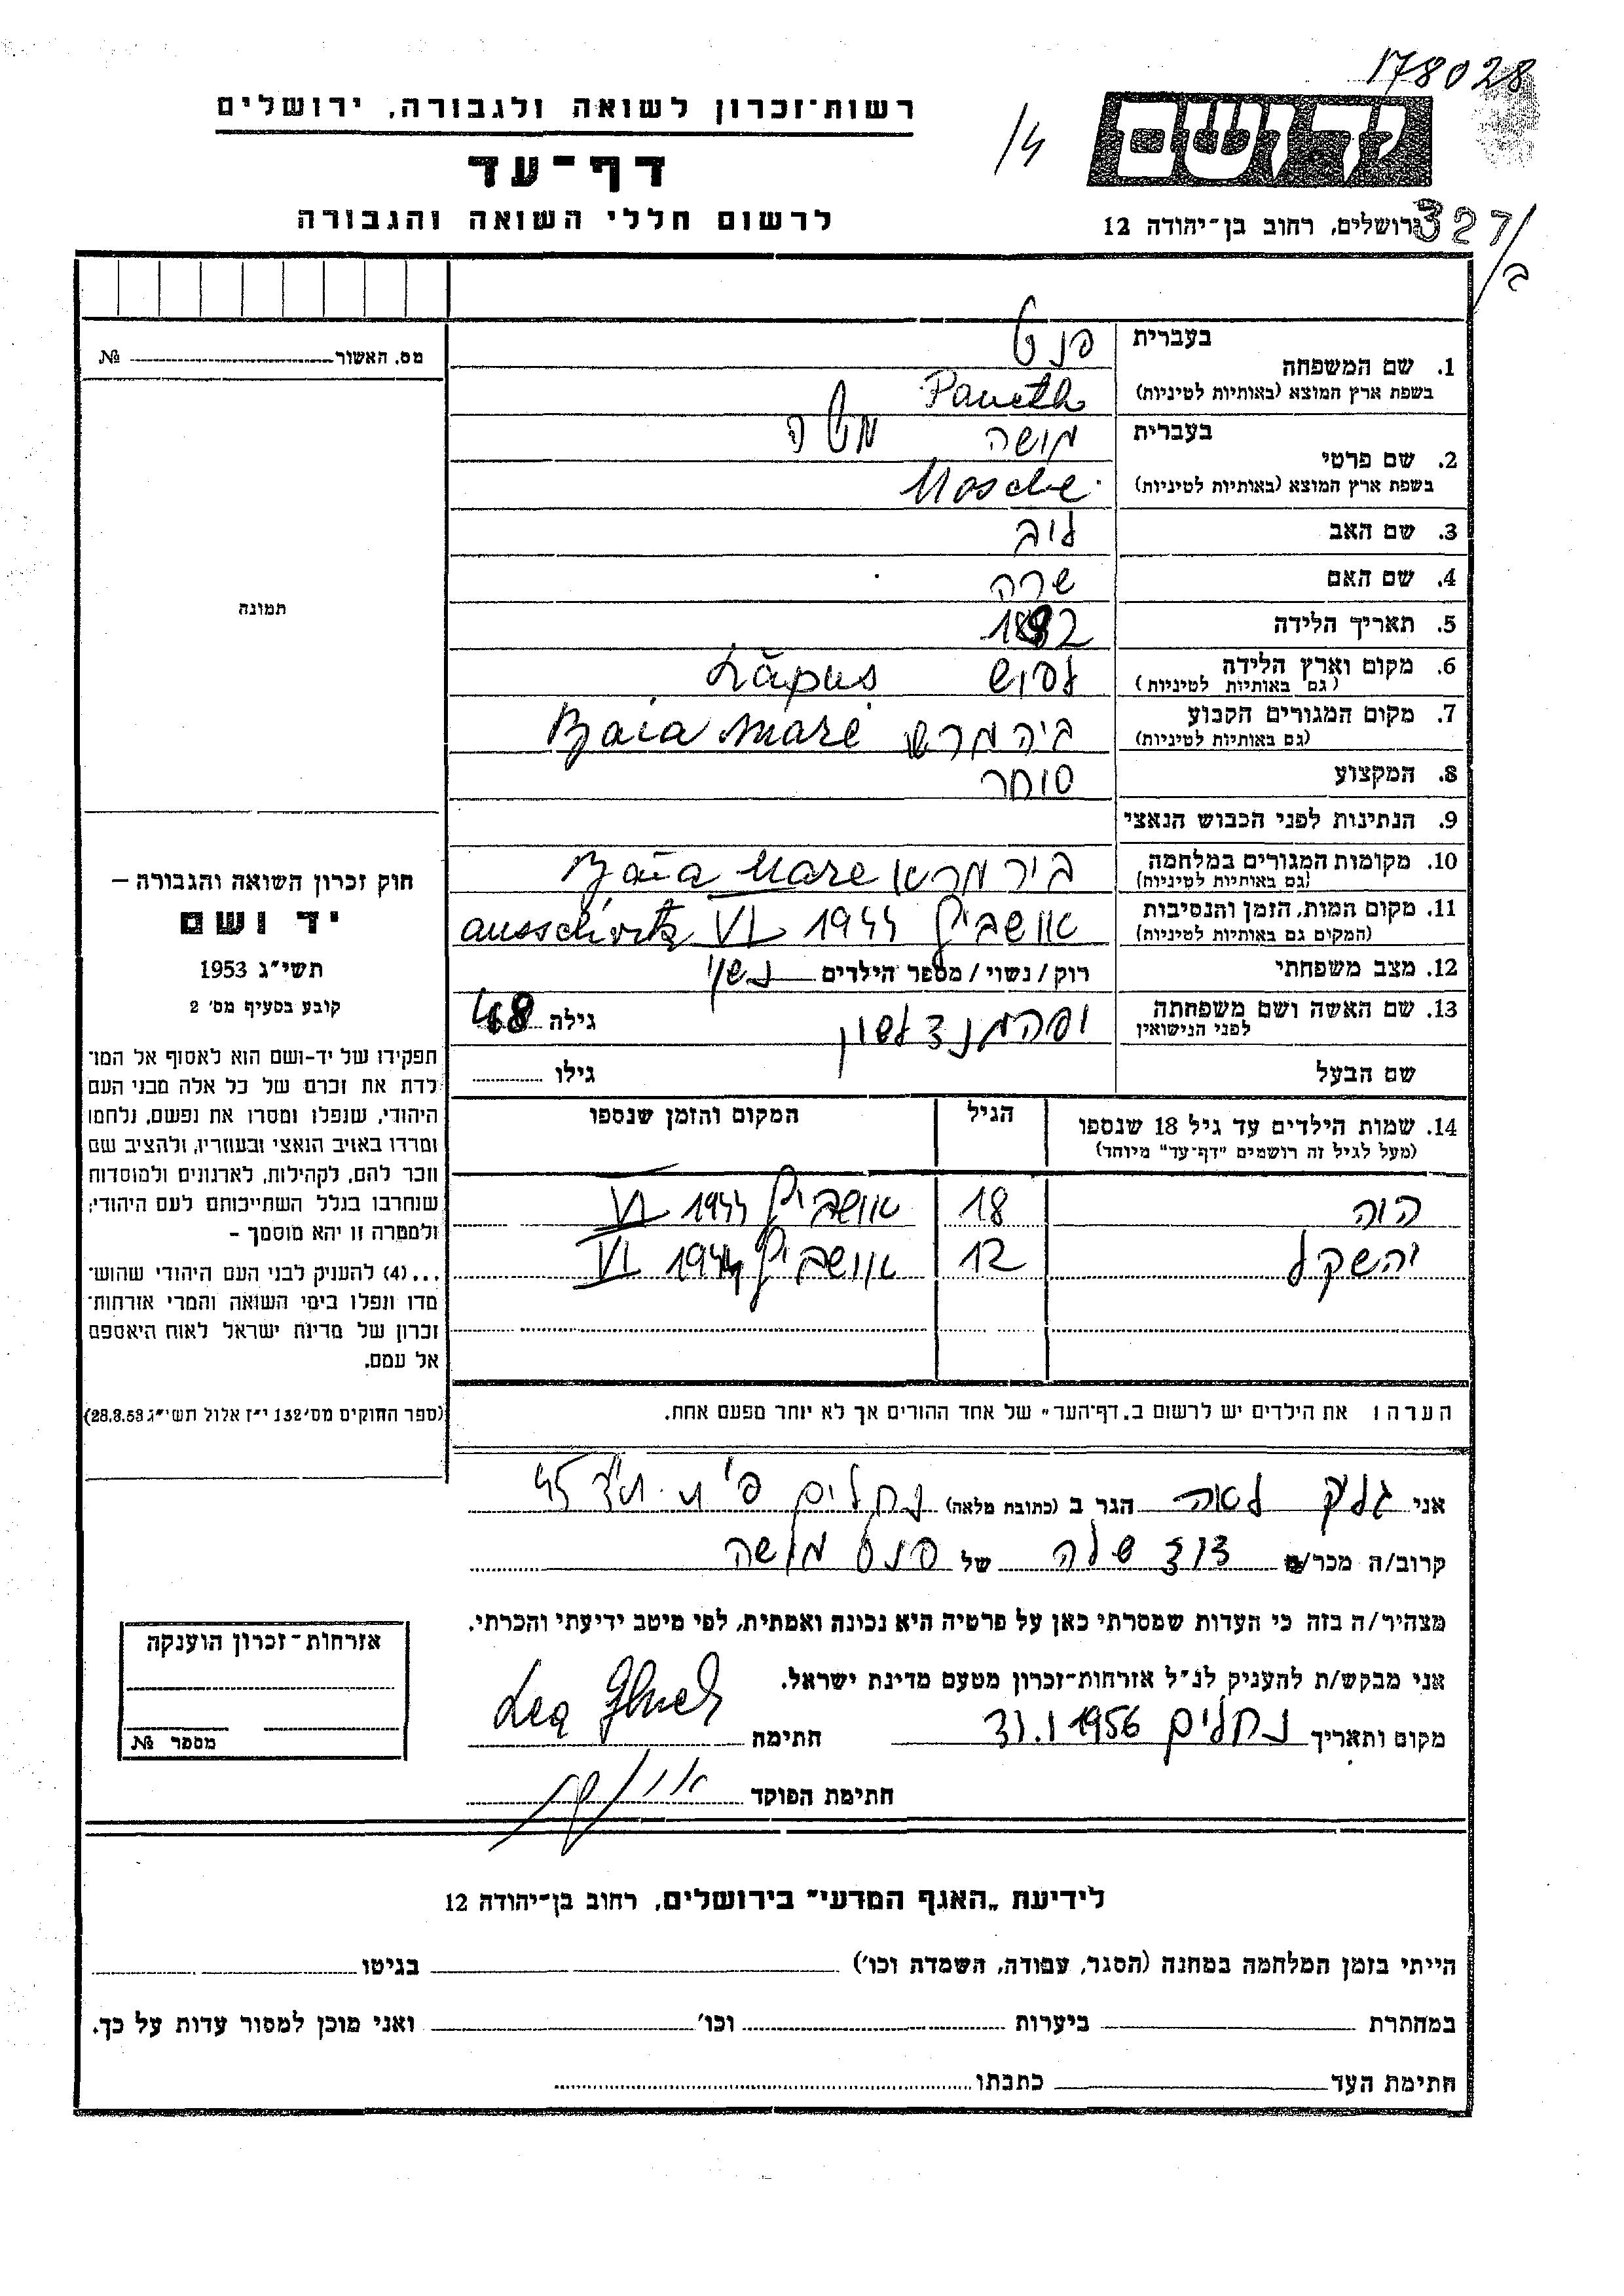 178028
רשות־זכרון לשואה ולגבורה, ירושלים
דף־עד
לרשום חללי השואה והגבורה
ידושם
ירושלים, רחוב בן־יהודה 12
327/ב
מס. האשור № 
תמונה
חוק זכרון השואה והגבורה –
יד ושם
תשי"ג 1953
קובע בסעיף מס' 2
תפקידו של יד-ושם הוא לאסוף אל המו־
לדת את זכרם של כל אלה מבני העם
היהודי, שנפלו ומסרו את נפשם, נלחמו
ומרדו באויב הנאצי ובעוזריו, ולהציב שם
וזכר להם, לקהילות, לארגונים ולמוסדות
שנחרבו בגלל השתייכותם לעם היהודי;
ולמטרה זו יהא מוסמך –
...(4) להעניק לבני העם היהודי שהוש־
מדו ונפלו בימי השואה והמרי אזרחות־
זכרון של מדינת ישראל לאות היאספם
אל עמם.
(ספר החוקים מס' 132 י"ז אלול תשי"ג 28.8.53)
1. שם המשפחה
בעברית פנט
בשפת ארץ המוצא (באותיות לטיניות) Paneth
2. שם פרטי
בעברית מושה משה
בשפת ארץ המוצא (באותיות לטיניות) Mosche
3. שם האב ליב
4. שם האם שרה
5. תאריך הלידה 1892
6. מקום וארץ הלידה (גם באותיות לטיניות) לפוש Lăpus
7. מקום המגורים הקבוע (גם באותיות לטיניות) ביה מרש Baia mare
8. המקצוע סוחר
9. הנתינות לפני הכבוש הנאצי
10. מקומות המגורים במלחמה (גם באותיות לטיניות) ביר מרא Baia Mare
11. מקום המות, הזמן והנסיבות (המקום גם באותיות לטיניות) אושביץ 1944 VI ausschvitz
12. מצב משפחתי רוק / נשוי / מספר הילדים נשוי
13. שם האשה ושם משפחתה לפני הנישואין גילה 48
שם הבעל גילו
14. שמות הילדים עד גיל 18 שנספו
(מעל לגיל זה רושמים "דף־עד" מיוחד)
הגיל
המקום והזמן שנספו
הוה 18 אושביץ 1944 VI
יהשקל 12 אושביץ 1944 VI
הערה: את הילדים יש לרשום ב"דף־העד" של אחד ההורים אך לא יותר מפעם אחת.
אני גליק לאה הגר ב (כתובת מלאה) נחלים
קרוב/ה מכר/ה דוד שלה של פנט משה
מצהיר/ה בזה כי העדות שמסרתי כאן על פרטיה היא נכונה ואמתית, לפי מיטב ידיעתי והכרתי.
אני מבקש/ת להעניק לנ"ל אזרחות־זכרון מטעם מדינת ישראל.
מקום ותאריך נחלים 31.1 1956 חתימה Lea Gluck
חתימת הפוקד
אזרחות־זכרון הוענקה
מספר №
לידיעת "האגף המדעי" בירושלים, רחוב בן־יהודה 12
הייתי בזמן המלחמה במחנה (הסגר, עבודה, השמדה וכו') בגיטו
במחתרת ביערות וכו' ואני מוכן למסור עדות על כך.
חתימת העד כתבתו